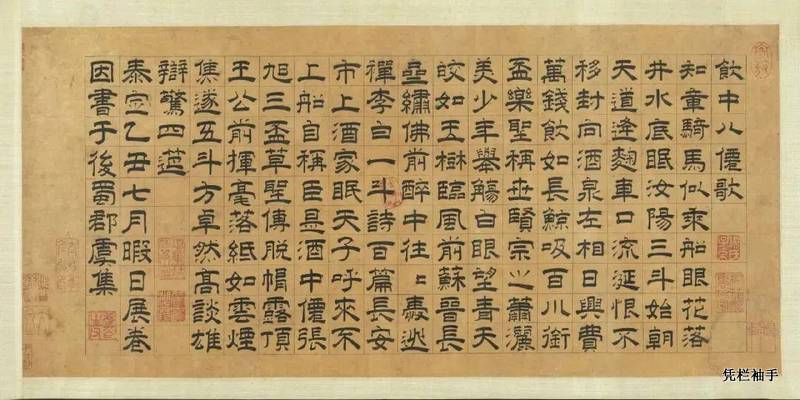 飲中八僊歌
知章騎馬似乘船眼花落
井水底眠汝陽三斗始朝
天道逢麴車口流涎恨不
移封向酒泉左相日興費
萬錢飲如長鯨吸百川銜
盃樂聖稱世賢宗之蕭灑
美少年舉觴白眼望青天
皎如玉樹臨風前蘇晉長
齋繡佛前醉中往〻愛逃
禪李白一斗詩百篇長安
市上酒家眠天子呼來不
上船自稱臣是酒中僊張
旭三盃草聖傳脫帽露頂
王公前揮毫落紙如雲煙
焦遂五斗方卓然高談雄
辯驚四筵
泰定乙丑七月暇日展卷
因書于後蜀郡虞集
凭栏袖手